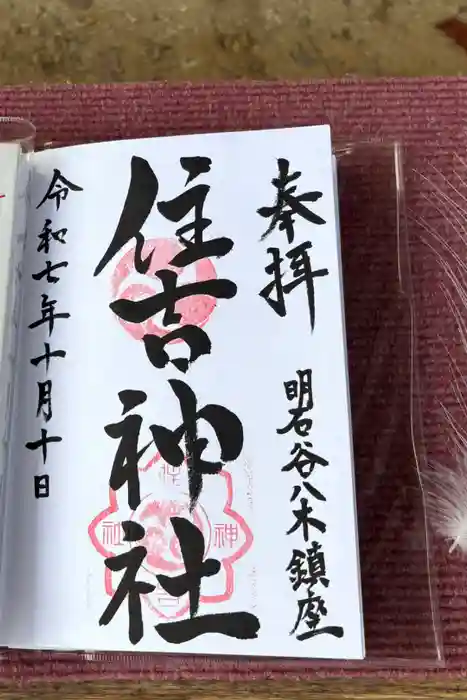 奉拝
明石谷八木鎮座
住吉神社
令和七年十月十日
住
吉
神
社